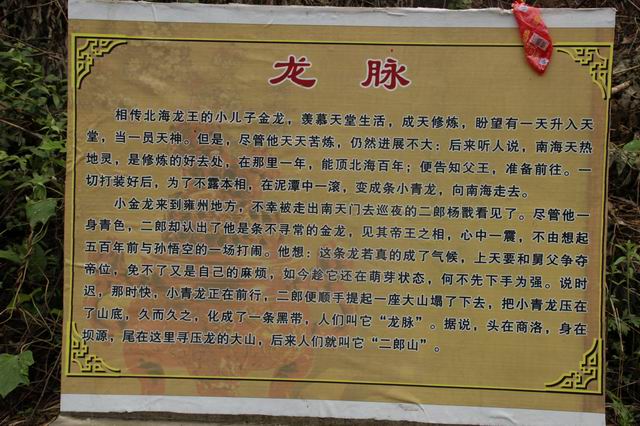 龙脉
相传北海龙王的小儿子金龙，羡慕天堂生活，成天修炼，盼望有一天升入天
堂，当一员天神。但是，尽管他天天苦炼，仍然进展不大：后来听人说，南海天热
地灵，是修炼的好去处，在那里一年，能顶北海百年；便告知父王，准备前往。一
切打装好后，为了不露本相，在泥潭中一滚，变成条小青龙，向南海走去。
小金龙来到雍州地方，不幸被走出南天门去巡夜的二郎杨戬看见了。尽管他一
身青色，二郎却认出了他是条不寻常的金龙，见其帝王之相，心中一震，不由想起
五百年前与孙悟空的一场打闹。他想：这条龙若真的成了气候，上天要和舅父争夺
帝位，免不了又是自己的麻烦，如今趁它还在萌芽状态，何不先下手为强。说时
迟，那时快，小青龙正在前行，二郎便顺手提起一座大山塌了下去，把小青龙压在
了山底，久而久之，化成了一条黑带，人们叫它“龙脉”。据说，头在商洛，身在
坝源，尾在这里寻压龙的大山，后来人们就叫它“二郎山”。